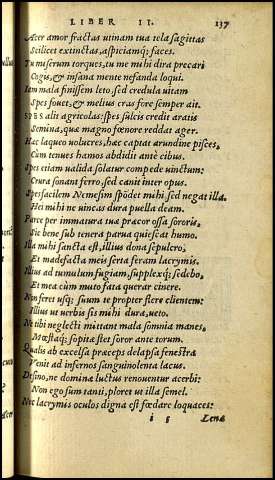 LIBER II. 137
Acer amor fractas utinam tua tela sagittas
Scilicet extinctas, aspiciamq; faces.
Tu miserum torques, tu me mihi dira precari
Cogis, & insana mente nefanda loqui.
Iam mala finissem leto, sed credula uitam
Spes fouet, & melius cras fore semper ait.
SPES alit agricolas: spes sulcis credit aratis
Semina, quæ magno fœnore reddat ager.
Hæc laqueo uolucres, hæc captat arundine pisces,
Cum tenues hamos abdidit antè cibus.
Spes etiam ualida solatur compede uinctum:
Crura sonant ferro, sed canit inter opus.
Spes facilem Nemesim spōdet mihi sed negat illa.
Hei mihi ne uincas dura puella deam.
Parce per immatura tuæ præcor ossa sororis,
Sic bene sub tenera parua quiescat humo.
Illa mihi sancta est, illius dona sepulcro,
Et madefacta meis serta feram lacrymis.
Illius ad tumulum fugiam, supplexq; sedebo,
Et mea cùm muto fata querar cinere.
Non feret usq; suum te propter flere clientem:
Illius ut uerbis sis mihi dura, ueto.
Ne tibi neglecti mittant mala somnia manes,
Mœstaq; sopitæ stet soror ante torum.
Qualis ab excelsa præceps delapsa fenestra
Venit ad infernos sanguinolenta lacus.
Desino, ne dominæ luctus renouentur acerbi:
Non ego sum tanti, ploret ut illa semel.
Nec lacrymis oculos digna est fœdare loquaces:
Lena